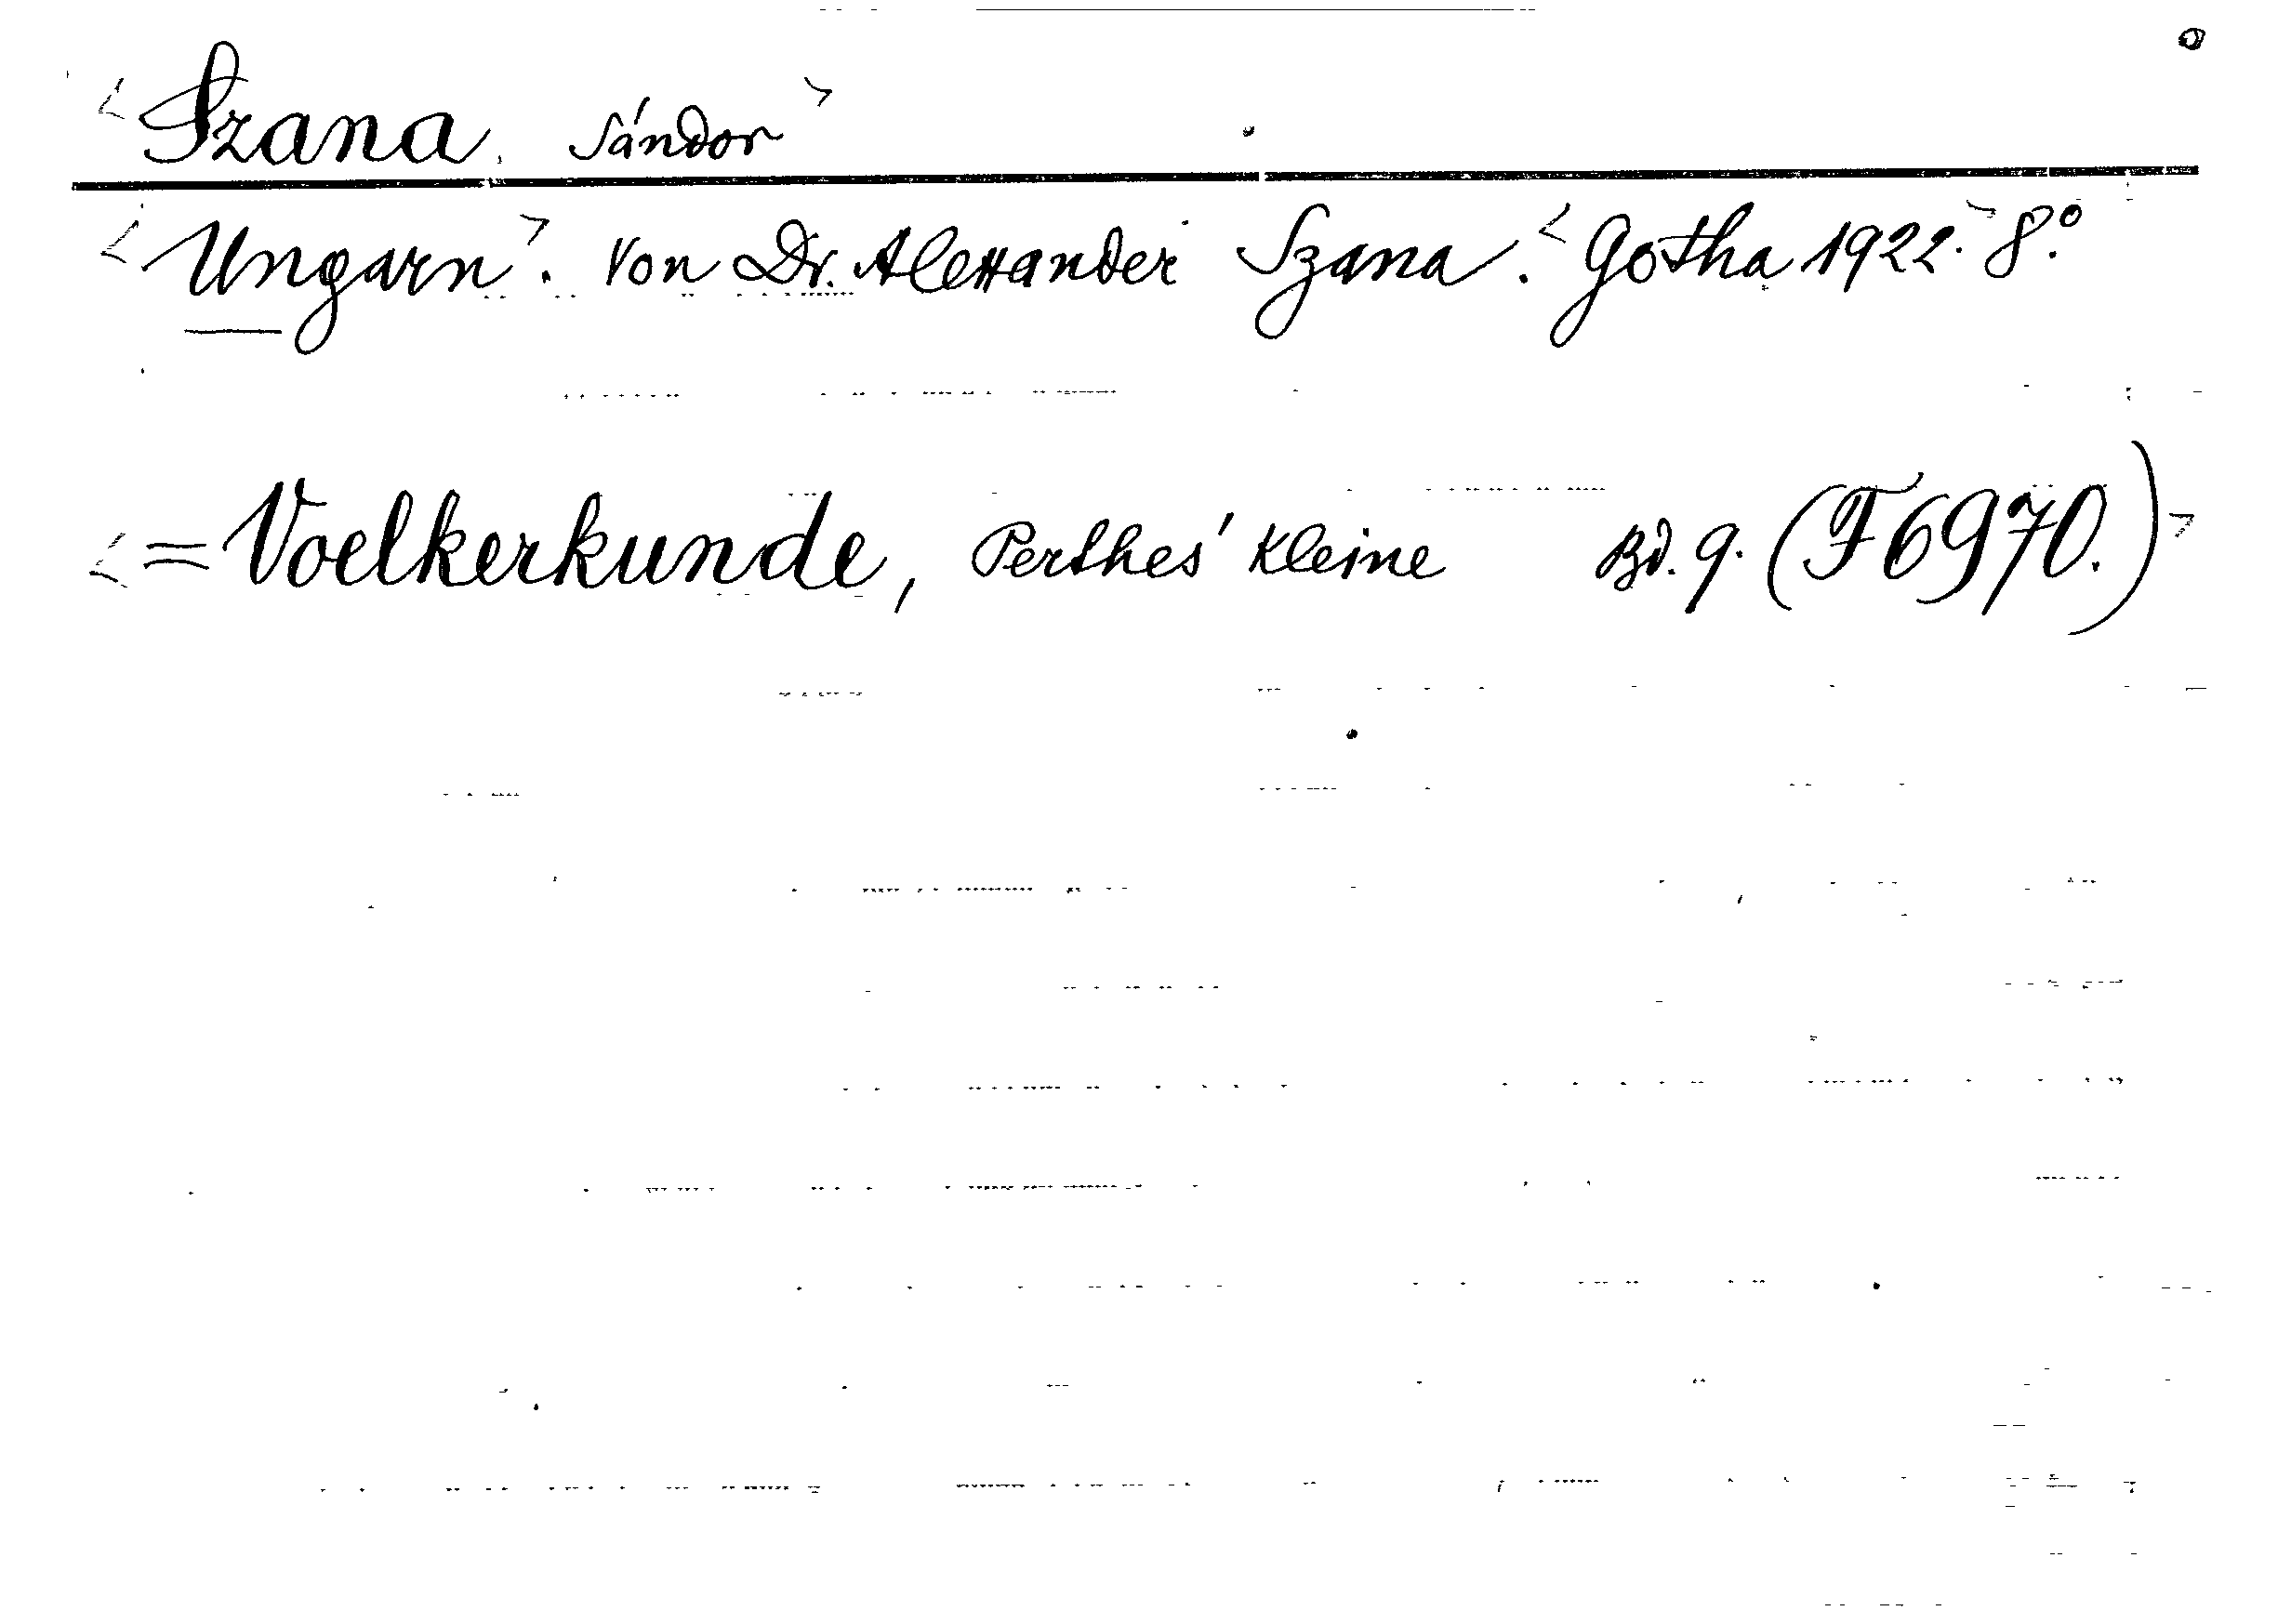 <Szana, Sándor>
<Ungarn>. Von Dr. Alexander Szana. <Gotha 1922.> 8.°
<= Voelkerkunde, Perthes' Kleine Bd. 9. (F 6970.)>